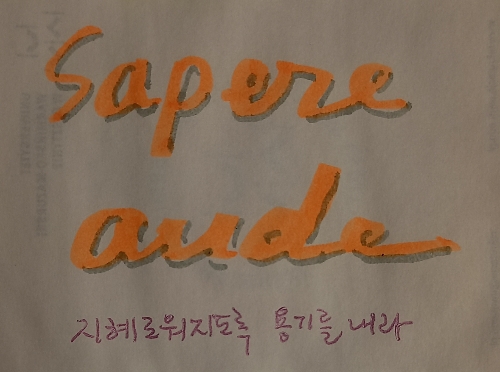 Sapere
aude
지혜로워지도록 용기를 내라